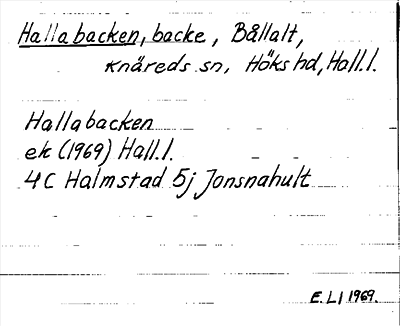 Hallabacken, backe, Bållalt,
Knäreds sn, Höks hd, Hall.l.
Hallabacken
ek (1969) Hall.l.
4C Halmstad 5j Jonsnahult
E.L] 1969.